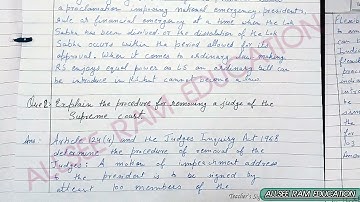 a proclamation imposing national emergency, president's
rule or financial emergency at a time when the Lok
Sabha has been dissolved or the dissolution of the Lok
Sabha occurs within the period allowed for its
approval. When it comes to ordinary law making
RS enjoys equal powers as LS. An ordinary bill can
be introduce in RS but cannot become a law
Que 2: Explain the procedure for removing a judge of the
Supreme court
Ans: Article 124(4) and the Judges Inquiry Act 1968
determine the procedure of removal of the
Judges: A motion of impeachment address
to the president is to be signed by
atleast 100 members of the
Teacher's
ALLSEE RAM EDUCATION
ALLSEE RAM EDUCATION